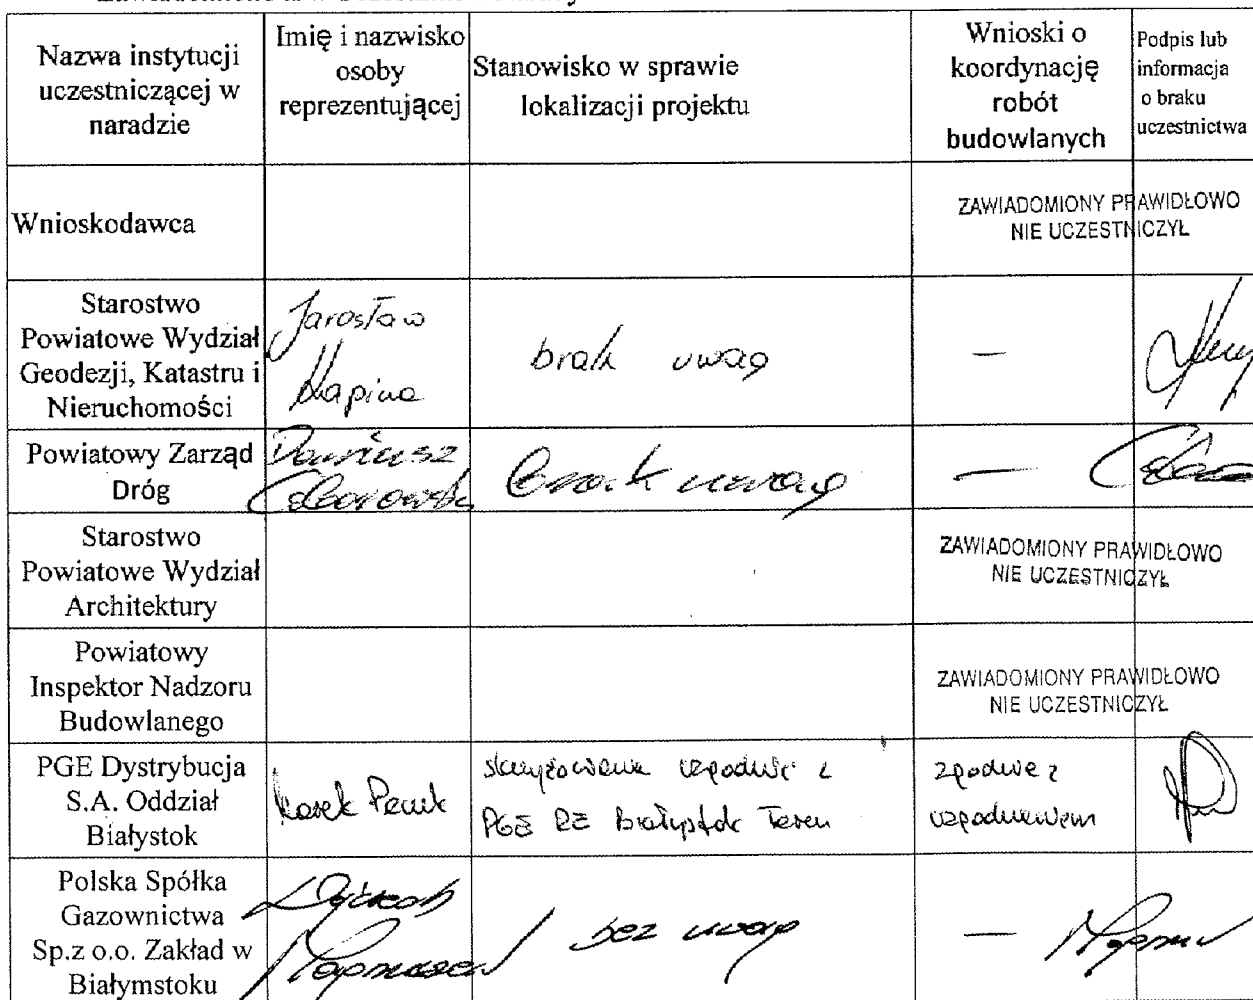 Nazwa instytucji
uczestniczącej w
naradzie
Imię i nazwisko
osoby
reprezentującej
Stanowisko w sprawie
lokalizacji projektu
Wnioski o
koordynację
robót
budowlanych
Podpis lub
informacja
o braku
uczestnictwa
Wnioskodawca
ZAWIADOMIONY PRAWIDŁOWO
NIE UCZESTNICZYŁ
Starostwo
Powiatowe Wydział
Geodezji, Katastru i
Nieruchomości
Jarosław
brak uwag
—
Powiatowy Zarząd
Dróg
Dariusz
brak uwag
—
Starostwo
Powiatowe Wydział
Architektury
ZAWIADOMIONY PRAWIDŁOWO
NIE UCZESTNICZYŁ
Powiatowy
Inspektor Nadzoru
Budowlanego
ZAWIADOMIONY PRAWIDŁOWO
NIE UCZESTNICZYŁ
PGE Dystrybucja
S.A. Oddział
Białystok
skrzyżowania uzgodnić z
PGE RE Białystok Teren
zgodnie z
uzgodnieniem
Polska Spółka
Gazownictwa
Sp.z o.o. Zakład w
Białymstoku
bez uwag
—